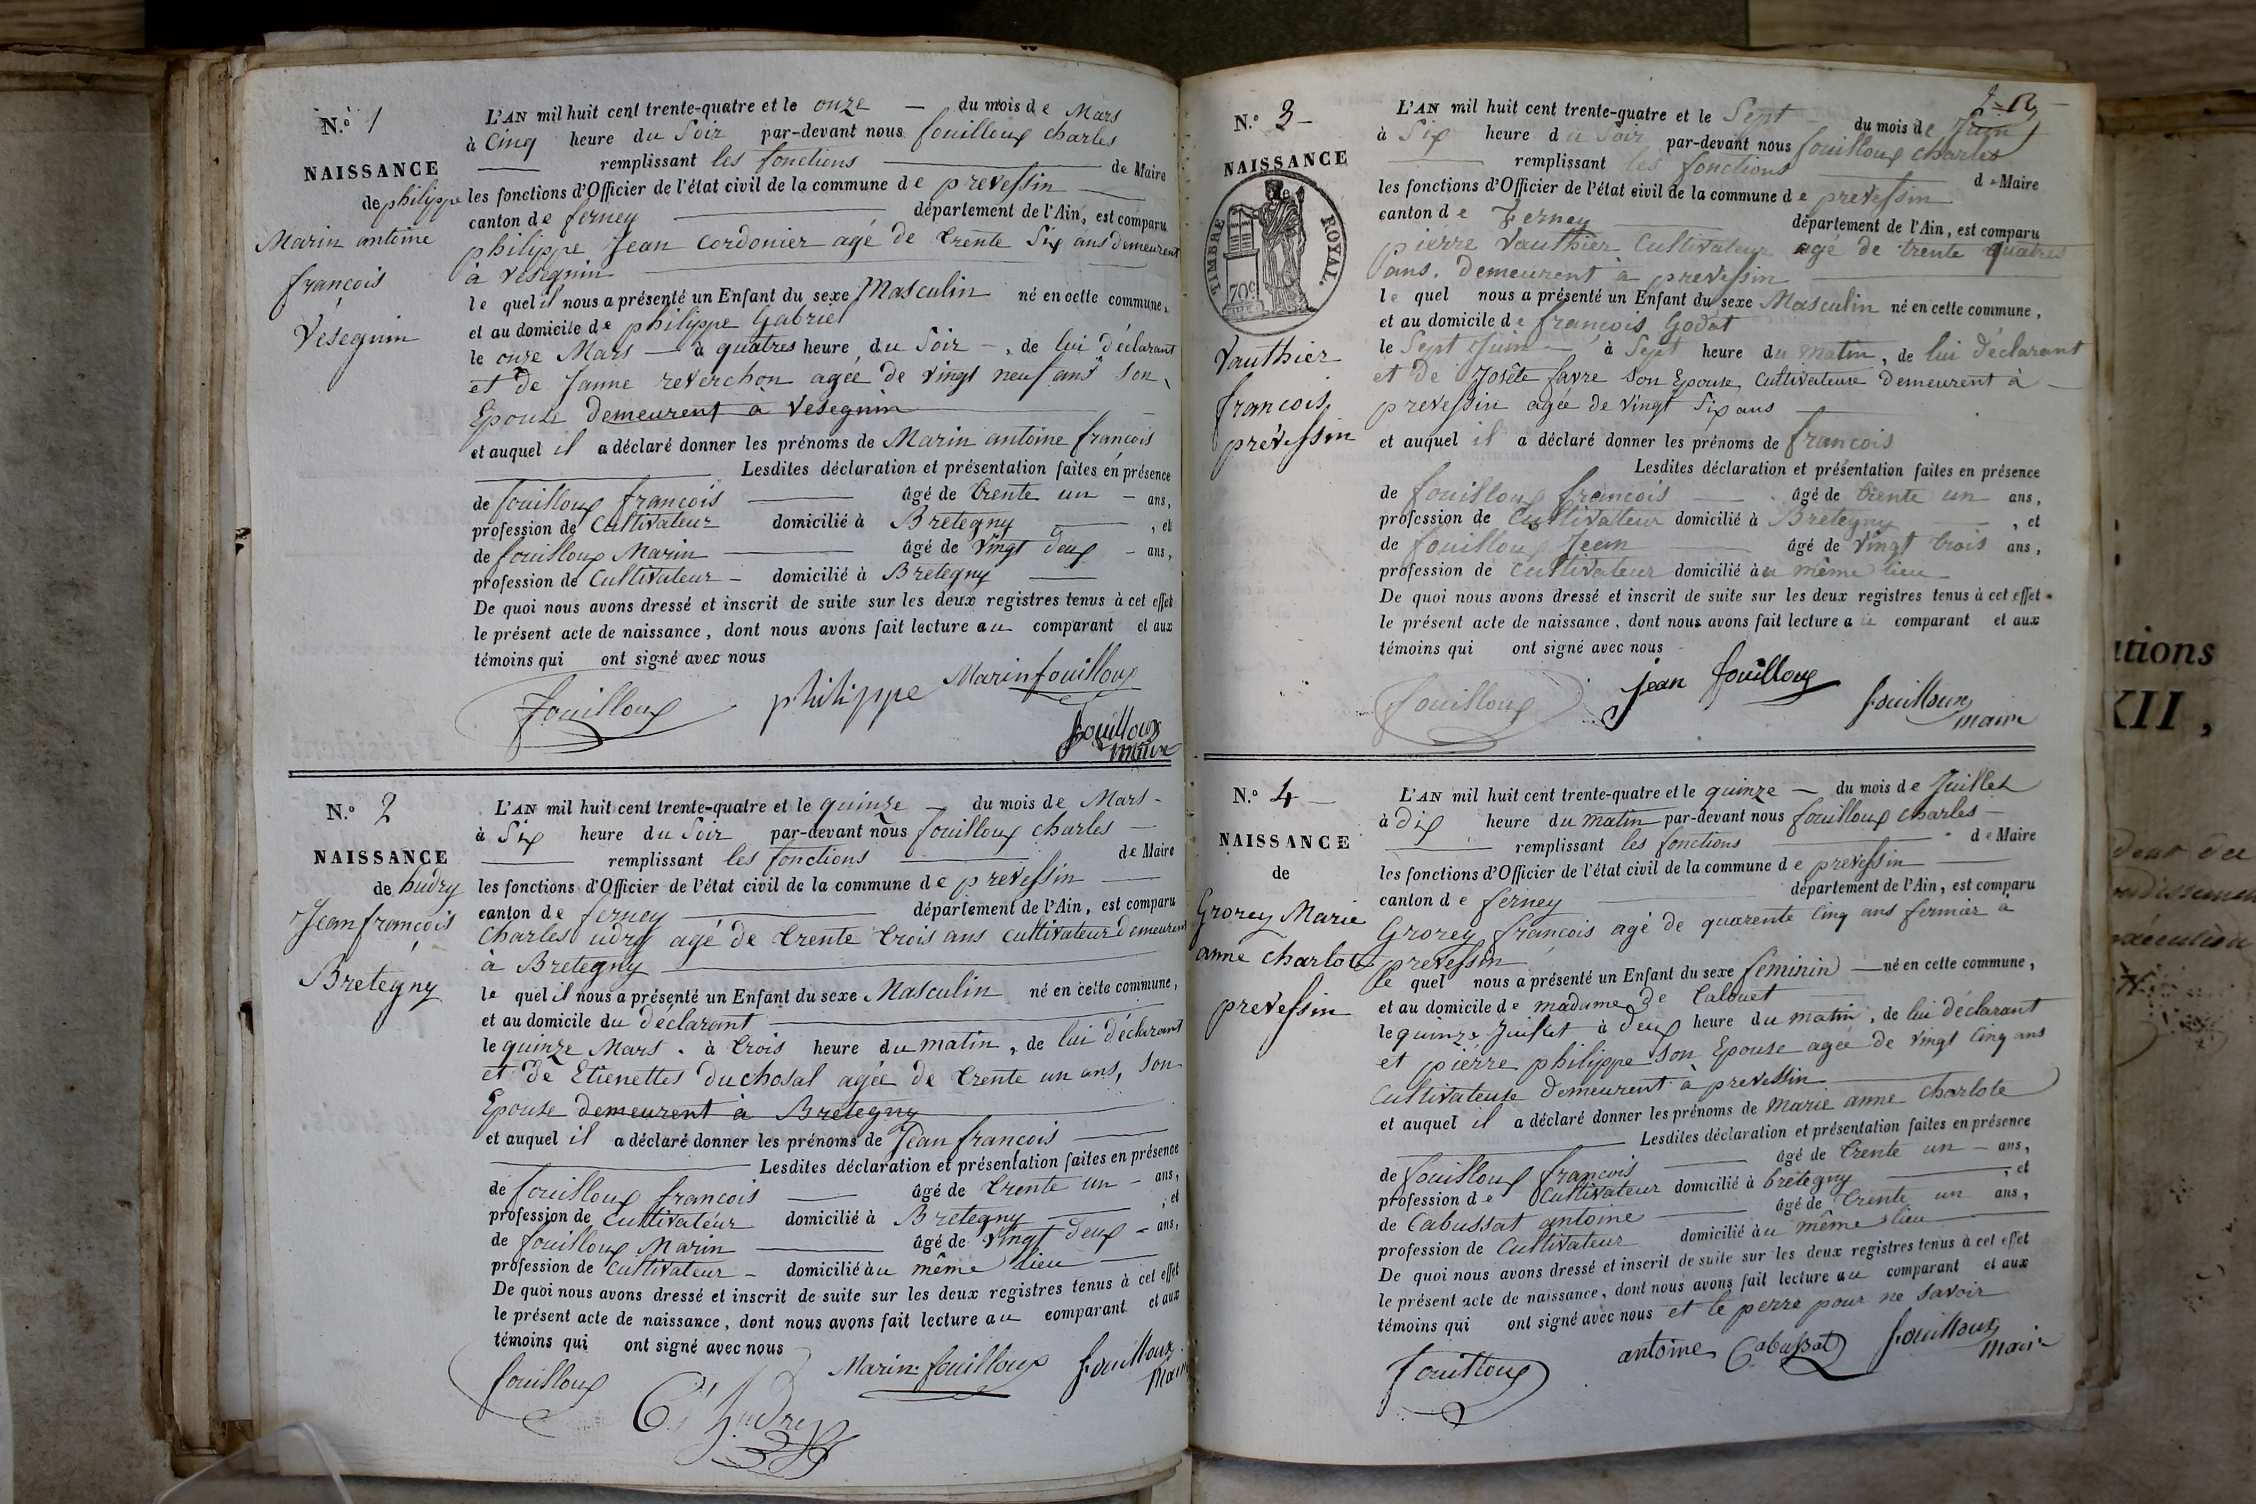 N.º 1
NAISSANCE
de philippe
Marin antoine
françois
Vésegnin
L'AN mil huit cent trente-quatre et le onze — du mois de Mars
à Cinq heure du Soir par-devant nous fouilloux charles
remplissant les fonctions de Maire
les fonctions d'Officier de l'état civil de la commune de prevessin
canton de ferney département de l'Ain, est comparu
philippe Jean Cordonier agé de trente Six ans demeurent
à Vésegnin
le quel il nous a présenté un Enfant du sexe Masculin né en cette commune,
et au domicile de philippe Gabriel
le onze Mars — à quatres heure du Soir —, de lui déclarant
et de Janne reverchon agée de vingt neuf ans son
Epouse demeurent a Vesegnin
et auquel il a déclaré donner les prénoms de Marin antoine françois
Lesdites déclaration et présentation faites en présence
de fouilloux françois âgé de trente un — ans,
profession de Cultivateur domicilié à Bretegny, et
de fouilloux Marin âgé de vingt deux — ans,
profession de Cultivateur — domicilié à Bretegny
De quoi nous avons dressé et inscrit de suite sur les deux registres tenus à cet effet
le présent acte de naissance, dont nous avons fait lecture au comparant et aux
témoins qui ont signé avec nous
fouilloux philippe Marin fouilloux
fouilloux
maire
N.º 2
NAISSANCE
de hudry
Jean françois
Bretegny
L'AN mil huit cent trente-quatre et le quinze — du mois de Mars -
à Six heure du Soir par-devant nous fouilloux charles —
remplissant les fonctions de Maire
les fonctions d'Officier de l'état civil de la commune de prevessin
canton de ferney département de l'Ain, est comparu
Charles udry agé de trente trois ans cultivateur demeurent
à Bretegny
le quel il nous a présenté un Enfant du sexe Masculin né en cette commune,
et au domicile du déclarant
le quinze Mars. à trois heure du matin, de lui déclarant
et de Etienettes duchosal agée de trente un ans, son
Epouse demeurent à Bretegny
et auquel il a déclaré donner les prénoms de Jean francois
Lesdites déclaration et présentation faites en présence
de fouilloux francois âgé de trente un — ans,
profession de Cultivateur domicilié à Bretegny, et
de fouilloux Marin âgé de vingt deux — ans,
profession de Cultivateur — domicilié au même lieu
De quoi nous avons dressé et inscrit de suite sur les deux registres tenus à cet effet
le présent acte de naissance, dont nous avons fait lecture au comparant et aux
témoins qui ont signé avec nous
fouilloux Marin fouilloux fouilloux
maire
N.º 3 —
NAISSANCE
TIMBRE ROYAL.
70c
Vauthier
francois
prévessin
L'AN mil huit cent trente-quatre et le Sept du mois de Juin
à Six heure du Soir par-devant nous fouilloux charles
remplissant les fonctions de Maire
les fonctions d'Officier de l'état civil de la commune de prevessin
canton de Ferney département de l'Ain, est comparu
pierre Vauthier Cultivateur agé de trente quatres
ans. demeurent à prevessin
le quel nous a présenté un Enfant du sexe Masculin né en cette commune,
et au domicile de françois Godét
le Sept Juin — à Sept heure du matin, de lui déclarant
et de Joséte favre son Epouse Cultivateure demeurent à —
prevessin agée de vingt Six ans
et auquel il a déclaré donner les prénoms de francois
Lesdites déclaration et présentation faites en présence
de fouilloux francois âgé de trente un ans,
profession de Cultivateur domicilié à Bretegny, et
de fouilloux Jean âgé de vingt trois ans,
profession de cultivateur domicilié au même lieu
De quoi nous avons dressé et inscrit de suite sur les deux registres tenus à cet effet
le présent acte de naissance, dont nous avons fait lecture au comparant et aux
témoins qui ont signé avec nous
fouilloux jean fouilloux fouilloux
maire
N.º 4 —
NAISSANCE
de
Grorey Marie
anne Charlote
prevessin
L'AN mil huit cent trente-quatre et le quinze — du mois de Juillet
à dix heure du matin par-devant nous fouilloux charles —
remplissant les fonctions de Maire
les fonctions d'Officier de l'état civil de la commune de prevessin
canton de ferney département de l'Ain, est comparu
Grorey françois agé de quarente Cinq ans fermier à
prevessin
le quel nous a présenté un Enfant du sexe feminin — né en cette commune,
et au domicile de madame de Calouet
le quinze Juillet à deux heure du matin, de lui déclarant
et pierre philippe son Epouse agée de vingt Cinq ans
Cultivateuse demeurent à prevessin
et auquel il a déclaré donner les prénoms de marie anne Charlote
Lesdites déclaration et présentation faites en présence
de fouilloux francois âgé de trente un — ans,
profession de Cultivateur domicilié à brétegny, et
de Cabussat antoine âgé de trente un ans,
profession de Cultivateur domicilié au même lieu
De quoi nous avons dressé et inscrit de suite sur les deux registres tenus à cet effet
le présent acte de naissance, dont nous avons fait lecture au comparant et aux
témoins qui ont signé avec nous et le perre pour ne savoir
fouilloux antoine Cabussat fouilloux
maire
XII,